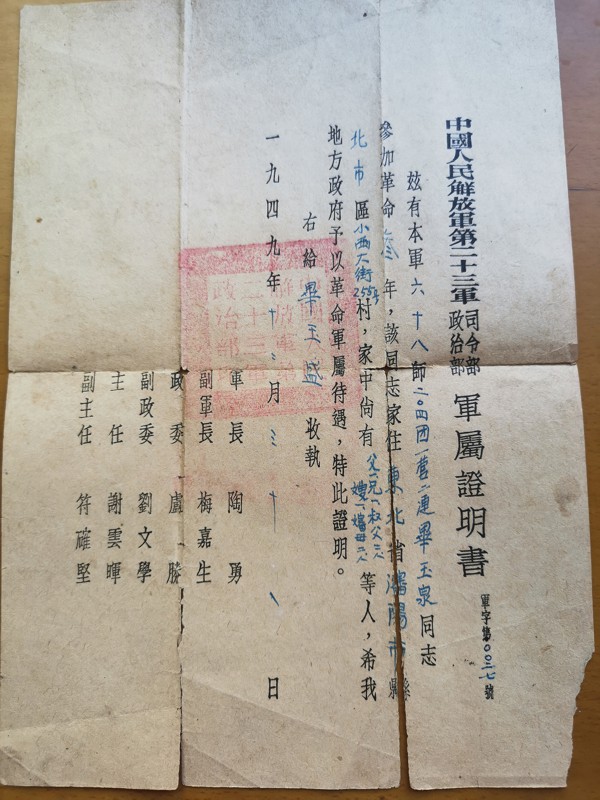 中國人民解放軍第二十三軍司令部政治部軍屬證明書
軍字第〇〇三一七號
茲有本軍六十八師二〇四团一营二連畢玉泉同志
參加革命叁年，該同志家住東北省瀋陽市縣
北市區小西大街255号村，家中尙有父一兄一叔父三人嫂一嬸母二人等人，希我
地方政府予以革命軍屬待遇，特此證明。
右給畢玉盛收執
軍長 陶勇
副軍長 梅嘉生
政委 盧勝
副政委 劉文學
主任 謝雲暉
副主任 符確堅
一九四九年十二月三十一日
中國人民解放軍第二十三軍政治部